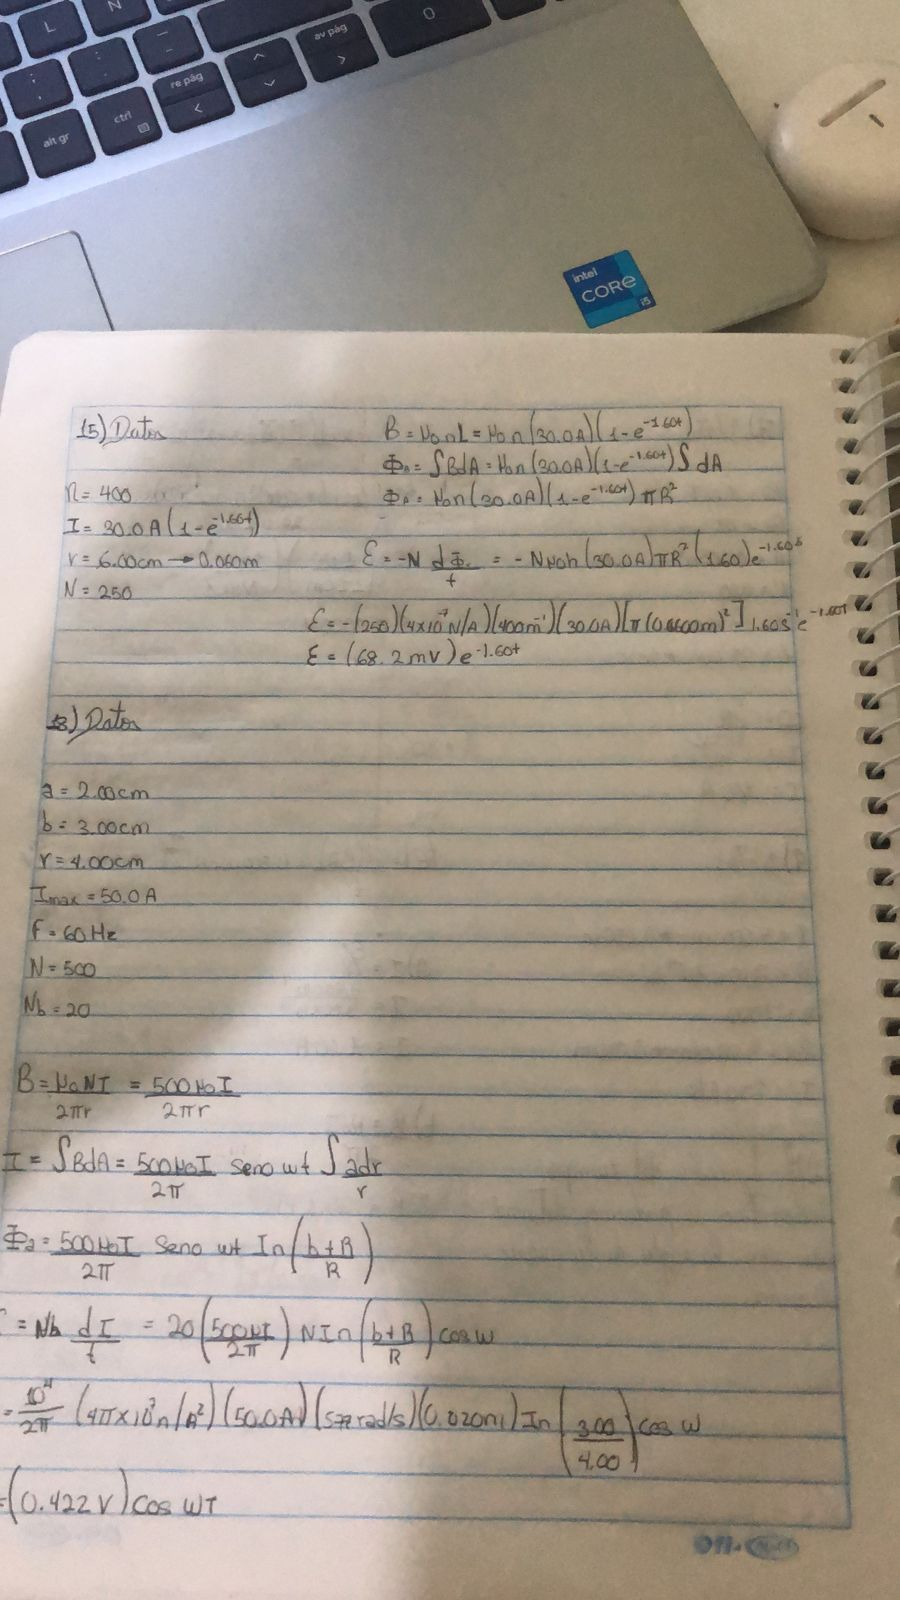 L
N
alt gr
ctrl
re pág
<
^
av pág
>
0
intel
CORE
i5
15) Datos
n = 400
I = 30.0 A (1 - e^-1.60t)
r = 6.00cm → 0.060m
N = 250
B = μ0 n L = μ0 n (30.0 A) (1 - e^-1.60t)
ΦB = ∫BdA = μ0 n (30.0A) (1 - e^-1.60t) ∫ dA
ΦB = μ0 n (30.0 A) (1 - e^-1.60t) πR²
ε = -N dΦ/t = -Nμ0n (30.0A) πR² (1.60) e^-1.60t
ε = -(250)(4×10^-7 N/A)(400m^-1)(30.0A)[π(0.0600m)²] 1.60s^-1 e^-1.60t
ε = (68.2mV) e^-1.60t
18) Datos
a = 2.00cm
b = 3.00cm
r = 4.00cm
Imax = 50.0 A
F = 60 Hz
N = 500
Nb = 20
B = μ0NI/2πr = 500μ0I/2πr
I = ∫BdA = 500μ0I/2π seno wt ∫ adr/r
Φa = 500μ0I/2π seno wt In (b+R/R)
= Nb dI/t = 20 (500μI/2π) N In (b+R/R) cos w
= 10^4/2π (4π×10^-7 n/A²) (50.0A) (577 rad/s) (0.020m) In (3.00/4.00) cos w
= (0.422 V) cos WT